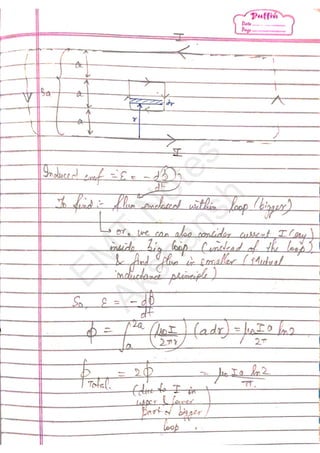 Puffin
Date
Page
I
a
3a
a
dr
a
r
I
Induced emf = ε = - dφ/dt
To find :- flux enclosed within loop (bigger)
or, we can also consider current I (say)
inside big loop (instead of the loop)
& find flux in smaller (Mutual
inductance principle)
So, ε = - dφ/dt
φ = ∫ₐ²ᵃ (μ₀I/2πr) (a dr) = μ₀Ia/2π ln2
φTotal = 2φ = μ₀Ia ln2/π.
(due to I in
upper & lower
Part of bigger
loop.